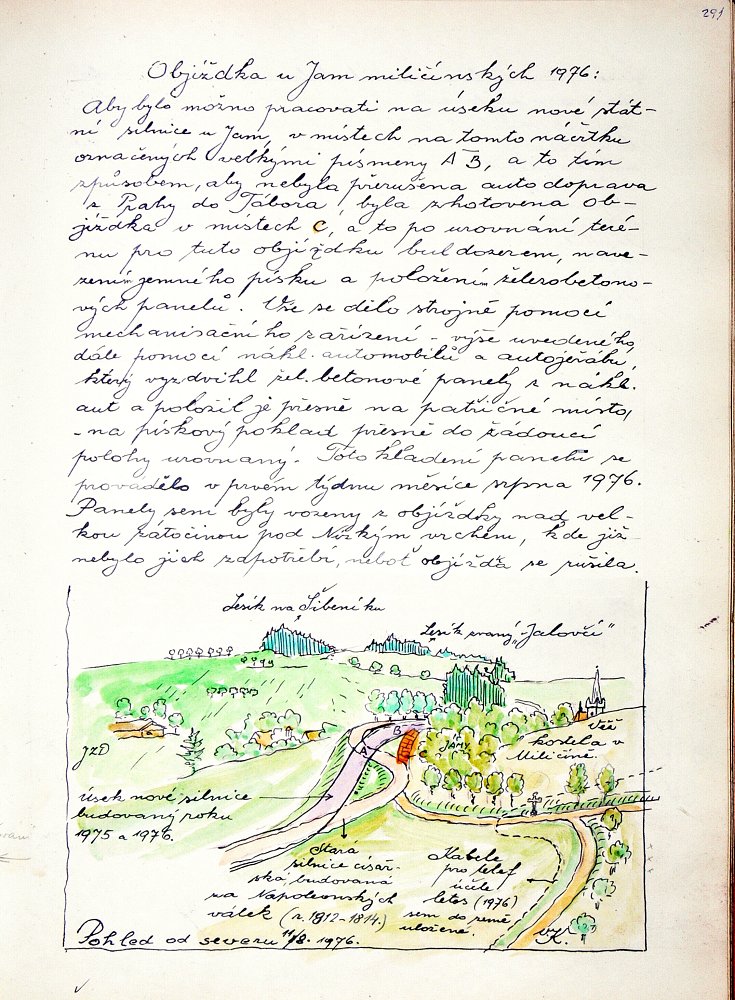 291
Objížďka u Jam miličínských 1976:
Aby bylo možno pracovati na úseku nové stát-
ní silnice u Jam, v místech na tomto náčrtku
označených velkými písmeny A B, a to tím
způsobem, aby nebyla přerušena autodoprava
z Prahy do Tábora, byla zhotovena ob-
jížďka v místech C, a to po urovnání teré-
nu pro tuto objížďku buldozerem, nave-
zením jemného písku a položením železobetono-
vých panelů. Vše se dělo strojně pomocí
mechanisačního zařízení - výše uvedeného,
dále pomocí nákl. automobilů a autojeřábu,
který vyzdvihl žel. betonové panely z nákl.
aut a položil je přesně na patřičné místo,
- na pískový poklad přesně do žádoucí
polohy urovnaný. Toto kladení panelů se
provádělo v prvém týdnu měsíce srpna 1976.
Panely sem byly vozeny z objížďky nad vel-
kou zátočinou pod Nízkým vrchem, kde již
nebylo jich zapotřebí, neboť objížďa se rušila.
Lesík na Šibeníku
Lesík zvaný „Jalovčí"
JZD
A
B
C
JAMY
Věž
kostela v
Miličíně.
úsek nové silnice
budovaný roku
1975 a 1976.
Stará
silnice císař-
ská, budovaná
za Napoleonských
válek (r. 1812-1814.)
Kabele
pro telef
účele
letos (1976)
sem do země
uložené.
Pohled od severu 11/8. 1976.
VK.